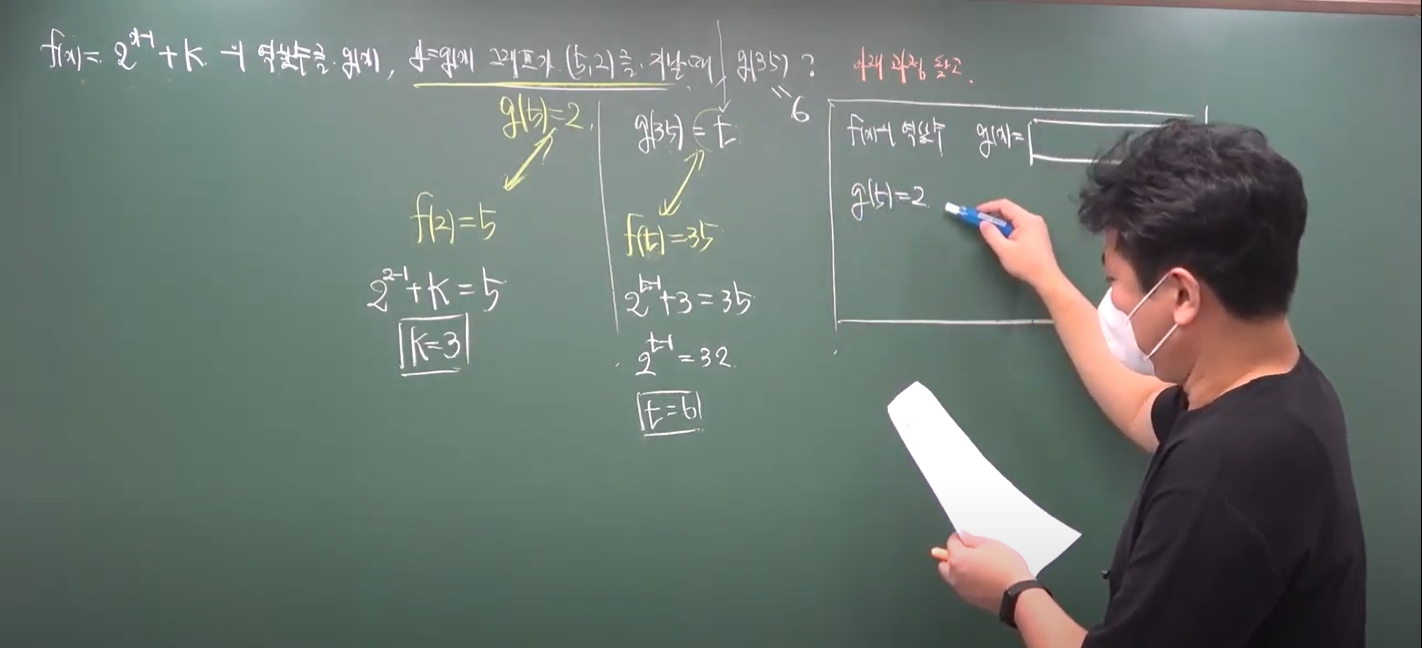 f(x)= 2^{x-1}+k 의 역함수를 g(x), y=g(x) 그래프가 (5,2)를 지날 때, g(35)?
=6
g(5)=2,
f(2)=5
2^{2-1}+k=5
k=3
g(35)=t
f(t)=35
2^{t-1}+3=35
2^{t-1}=32
t=6
f(x)의 역함수 g(x)=
g(5)=2